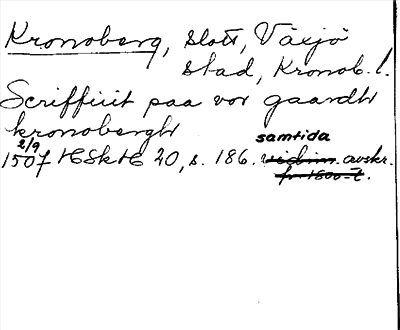 Kronoberg, slott, Växjö
stad, Kronob. l.
Scriffuit paa vor gaardh
kronobergh
2/9 samtida
1507 HSkH 20, s. 186. vidim. avskr.
fr. 1800-t.